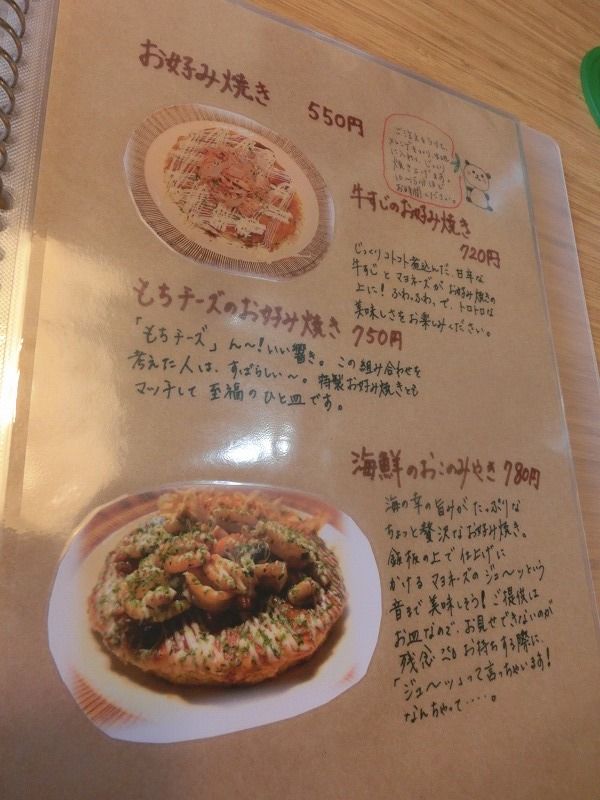 お好み焼き 550円
ご注文をうけて、
焼き上げます。
お時間ください。
牛すじのお好み焼き
720円
じっくりコトコト煮込んだ、甘辛な
牛すじとマヨネーズがお好み焼きの
上に！ふわっふわっで、トロトロな
美味しさをお楽しみください。
もちチーズのお好み焼き 750円
「もちチーズ」ん〜！いい響き。この組み合わせを
考えた人は、すばらしい〜。特製お好み焼きとも
マッチして至福のひと皿です。
海鮮のおこのみやき 780円
海の幸の旨みがたっぷりな
ちょっと贅沢なお好み焼き。
鉄板の上で仕上げに
かけるマヨネーズのジュ〜ッという
音まで美味しそう！ご提供は
お皿なので、お見せできないのが
残念 お持ちする際に、
「ジュ〜ッ」って言っちゃいます！
なんちゃって・・・・・。